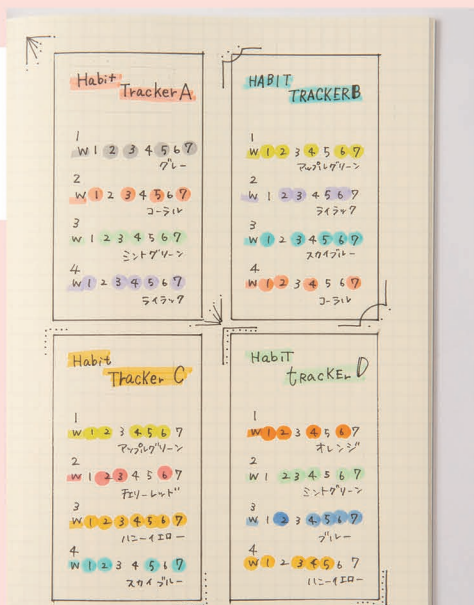 Habit
Tracker A
1
W 1 2 3 4 5 6 7
グレー
2
W 1 2 3 4 5 6 7
コーラル
3
W 1 2 3 4 5 6 7
ミントグリーン
4
W 1 2 3 4 5 6 7
ライラック
HABIT
TRACKER B
1
W 1 2 3 4 5 6 7
アップルグリーン
2
W 1 2 3 4 5 6 7
ライラック
3
W 1 2 3 4 5 6 7
スカイブルー
4
W 1 2 3 4 5 6 7
コーラル
Habit
Tracker C
1
W 1 2 3 4 5 6 7
アップルグリーン
2
W 1 2 3 4 5 6 7
チェリーレッド
3
W 1 2 3 4 5 6 7
ハニーイエロー
4
W 1 2 3 4 5 6 7
スカイブルー
HabiT
tRacKEr D
1
W 1 2 3 4 5 6 7
オレンジ
2
W 1 2 3 4 5 6 7
ミントグリーン
3
W 1 2 3 4 5 6 7
ブルー
4
W 1 2 3 4 5 6 7
ハニーイエロー